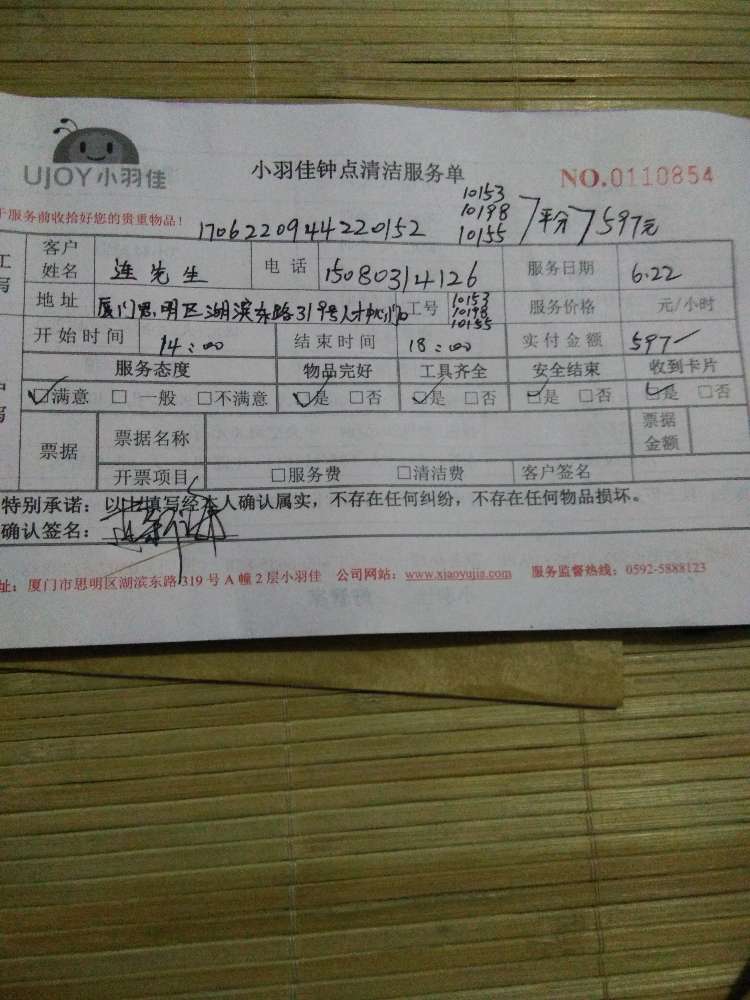 UJOY小羽佳
小羽佳钟点清洁服务单
NO.0110854
于服务前收拾好您的贵重物品!
170622094420152
10153
10198
10155
平分
597元
工
写
客户姓名 连先生 电话 15080314126 服务日期 6.22
地址 厦门思明区湖滨东路319号人才中心 工号 10153 10198 10155 服务价格 元/小时
开始时间 14:00 结束时间 18:00 实付金额 597
服务态度 物品完好 工具齐全 安全结束 收到卡片
户
写
☑满意 □一般 □不满意 ☑是 □否 ☑是 □否 ☑是 □否 ☑是 □否
票据 票据名称 票据金额
开票项目 □服务费 □清洁费 客户签名
特别承诺:以上填写经本人确认属实,不存在任何纠纷,不存在任何物品损坏。
确认签名:
址:厦门市思明区湖滨东路319号A幢2层小羽佳 公司网站:www.xiaoyujia.com 服务监督热线:0592-5888123